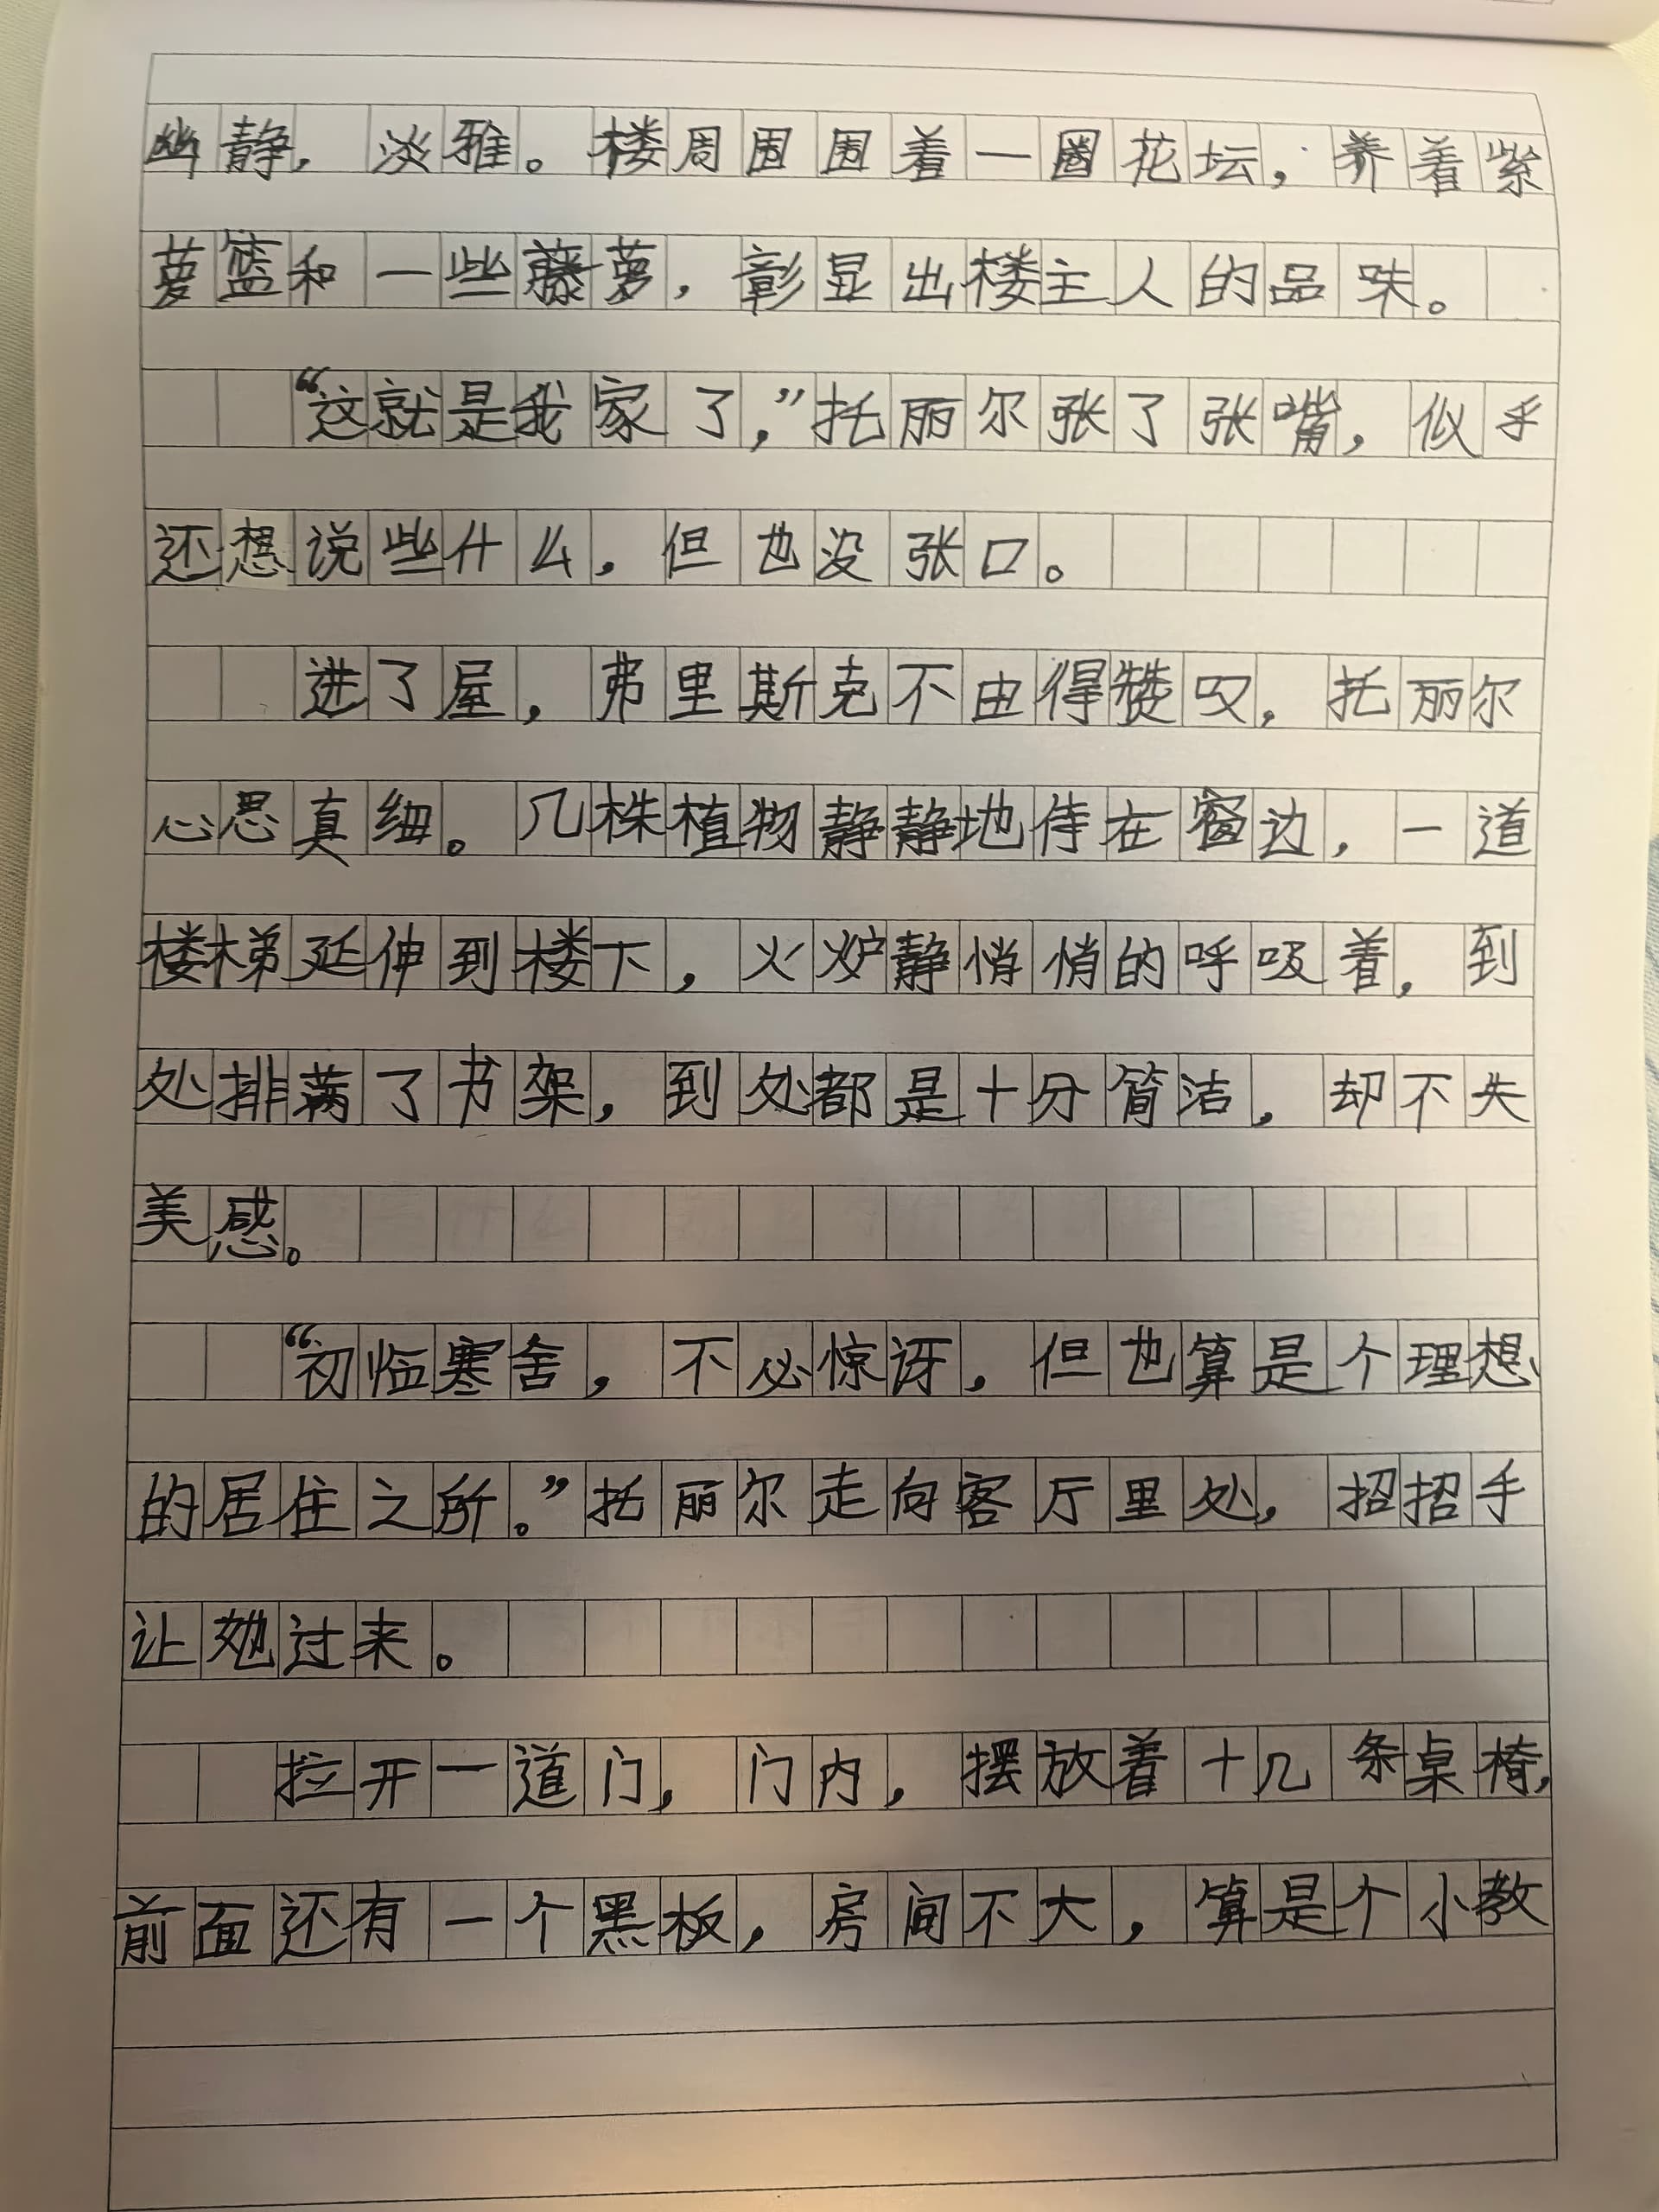 幽静，淡雅。楼周围围着一圈花坛，养着紫
萝篮和一些藤萝，彰显出楼主人的品味。
“这就是我家了，”托丽尔张了张嘴，似乎
还想说些什么，但也没张口。
进了屋，弗里斯克不由得赞叹，托丽尔
心思真细。几株植物静静地侍在窗边，一道
楼梯延伸到楼下，火炉静悄悄的呼吸着，到
处排满了书架，到处都是十分简洁，却不失
美感。
“初临寒舍，不必惊讶，但也算是个理想
的居住之所。”托丽尔走向客厅里处，招招手
让她过来。
拉开一道门，门内，摆放着十几条桌椅，
前面还有一个黑板，房间不大，算是个小教